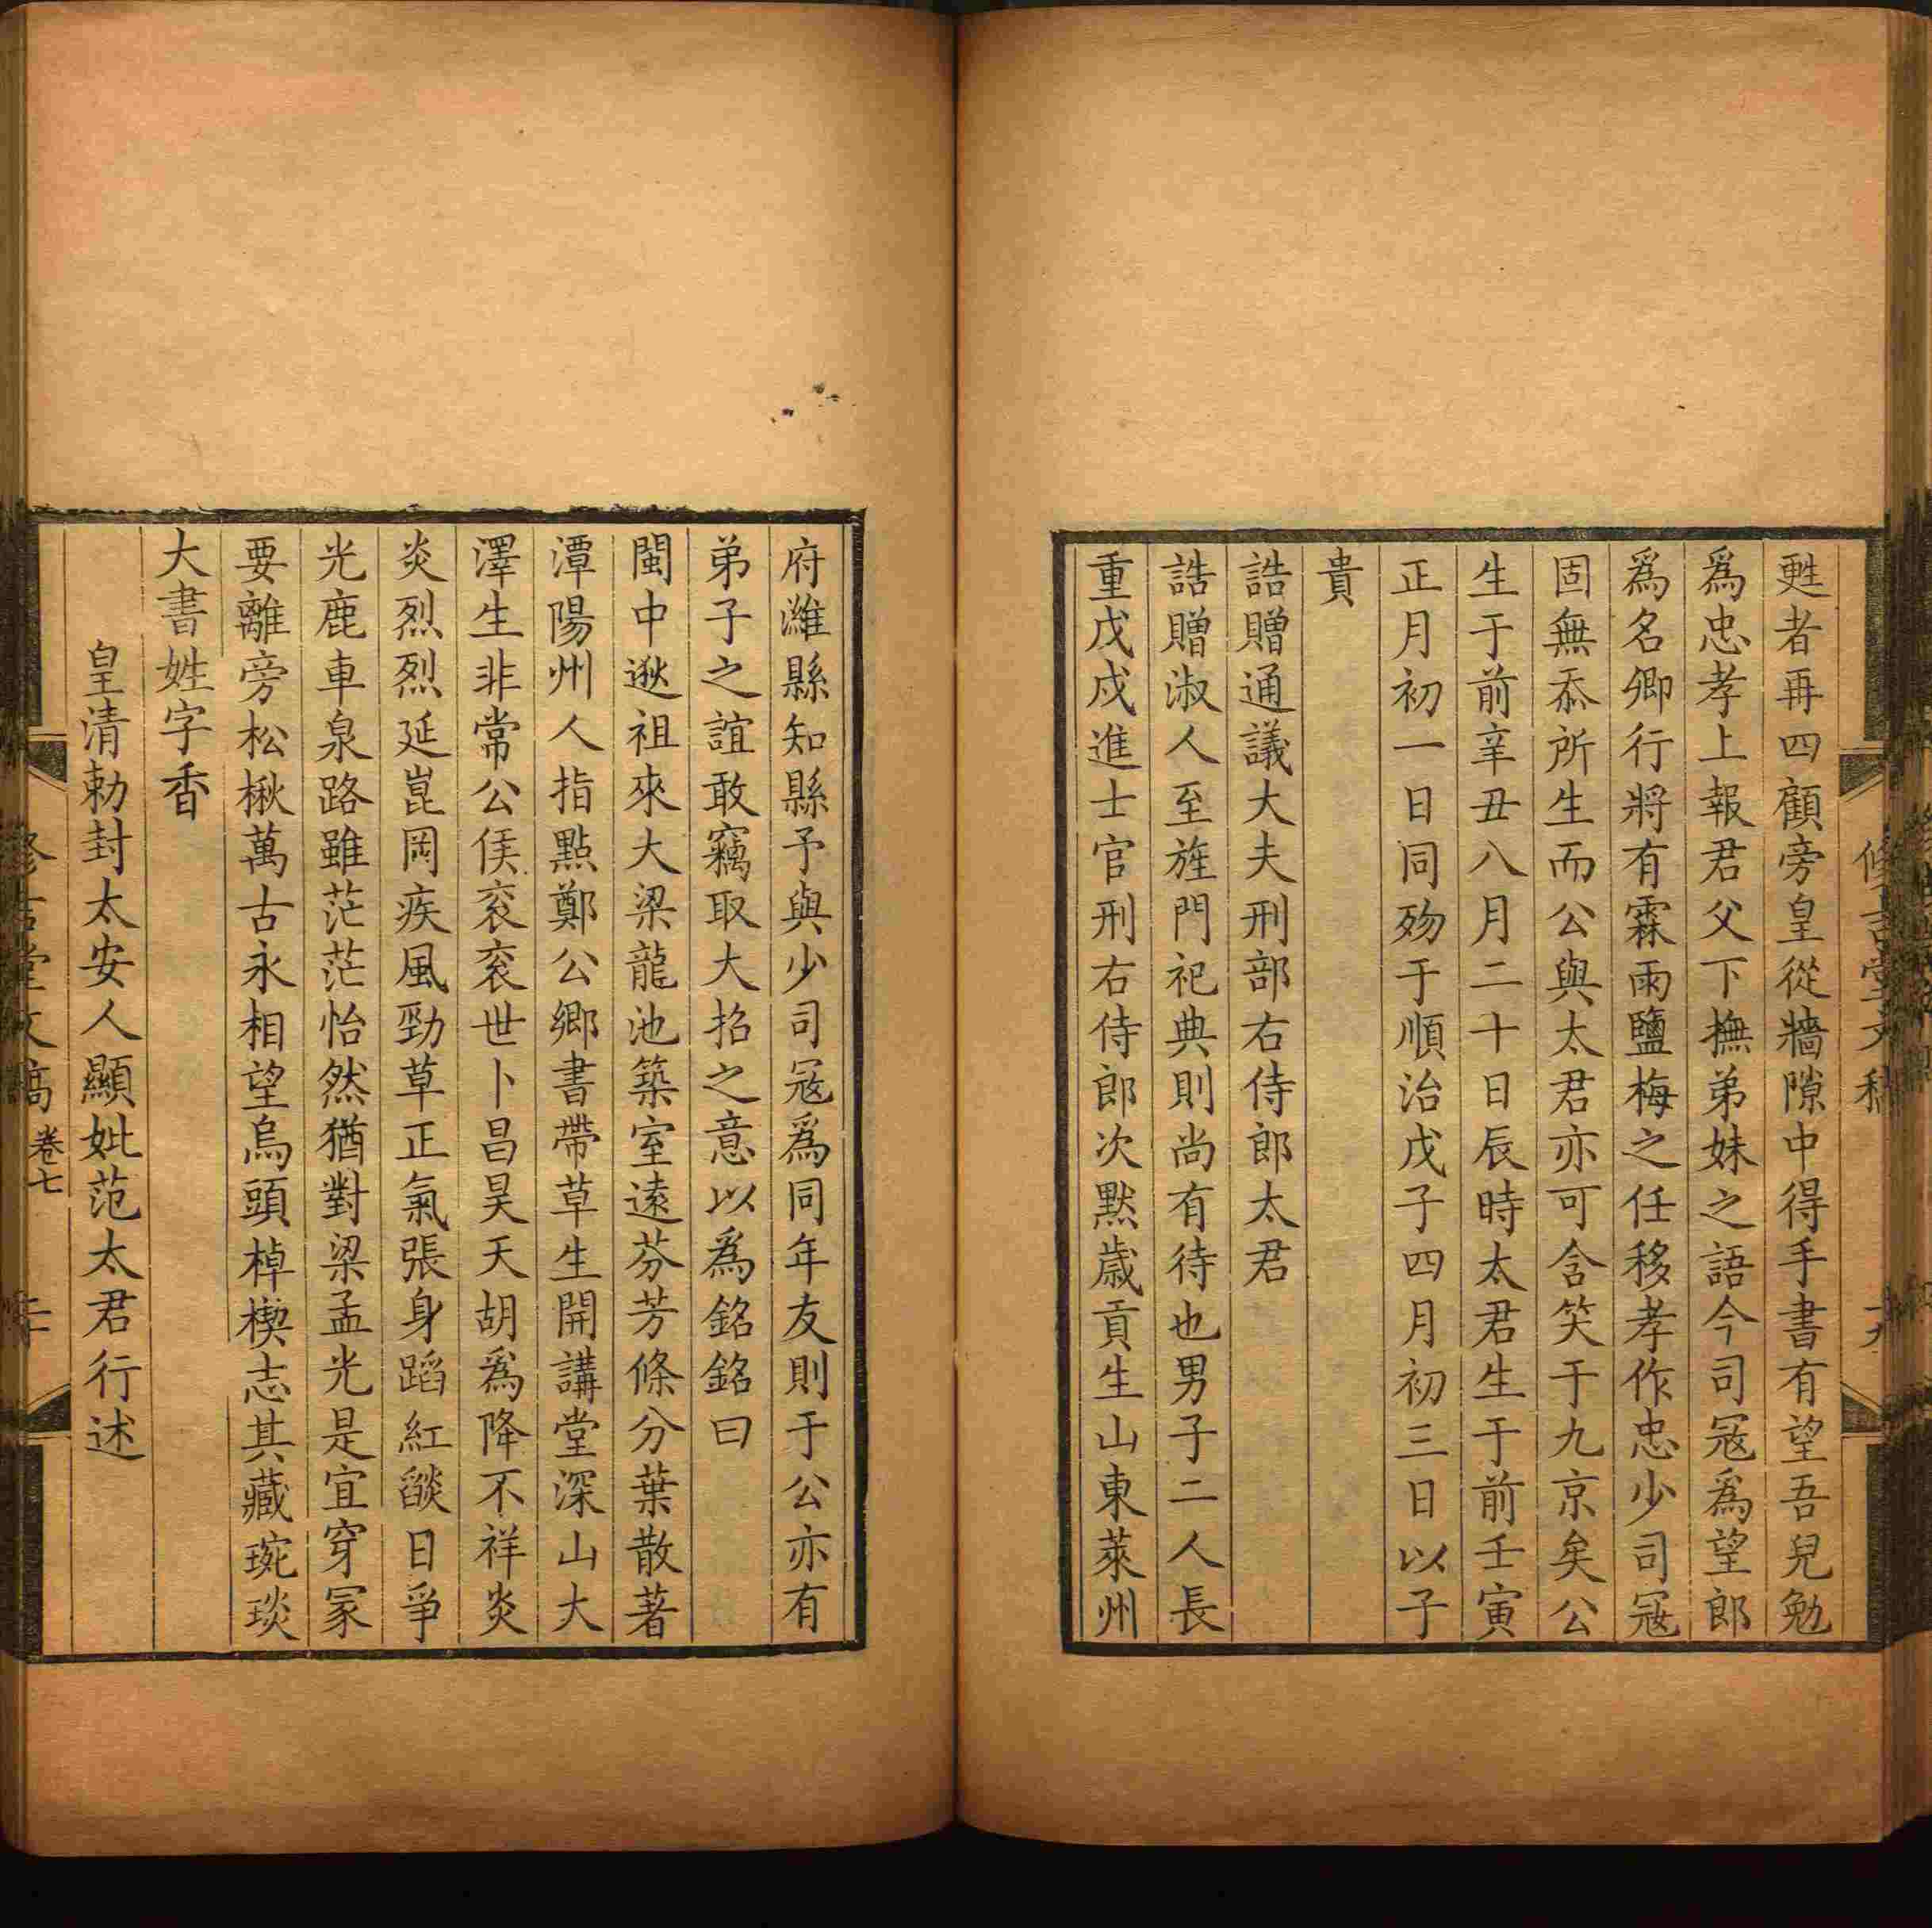 甦者再四顧旁皇從牆隙中得手書有望吾兒勉
爲忠孝上報君父下撫弟妹之語今司冦爲望郎
爲名卿行將有霖雨鹽梅之任移孝作忠少司冦
固無忝所生而公與太君亦可含笑于九京矣公
生于前辛丑八月二十日辰時太君生于前壬寅
正月初一日同歾于順治戊子四月初三日以子
貴
誥贈通議大夫刑部右侍郎太君
誥贈淑人至旌門祀典則尚有待也男子二人長
重戊戌進士官刑右侍郎次黙歲貢生山東萊州
府濰縣知縣予與少司冦爲同年友則于公亦有
弟子之誼敢竊取大招之意以爲銘銘曰
閩中逖祖來大梁龍池築室遠芬芳條分葉散著
潭陽州人指點鄭公鄉書帶草生開講堂深山大
澤生非常公侯衮衮世卜昌昊天胡爲降不祥炎
炎烈烈延崑岡疾風勁草正氣張身蹈紅燄日爭
光鹿車泉路雖茫茫怡然猶對梁孟光是宜穿冡
要離旁松楸萬古永相望烏頭棹楔志其藏琬琰
大書姓字香
皇清勅封太安人顯妣范太君行述
卷七